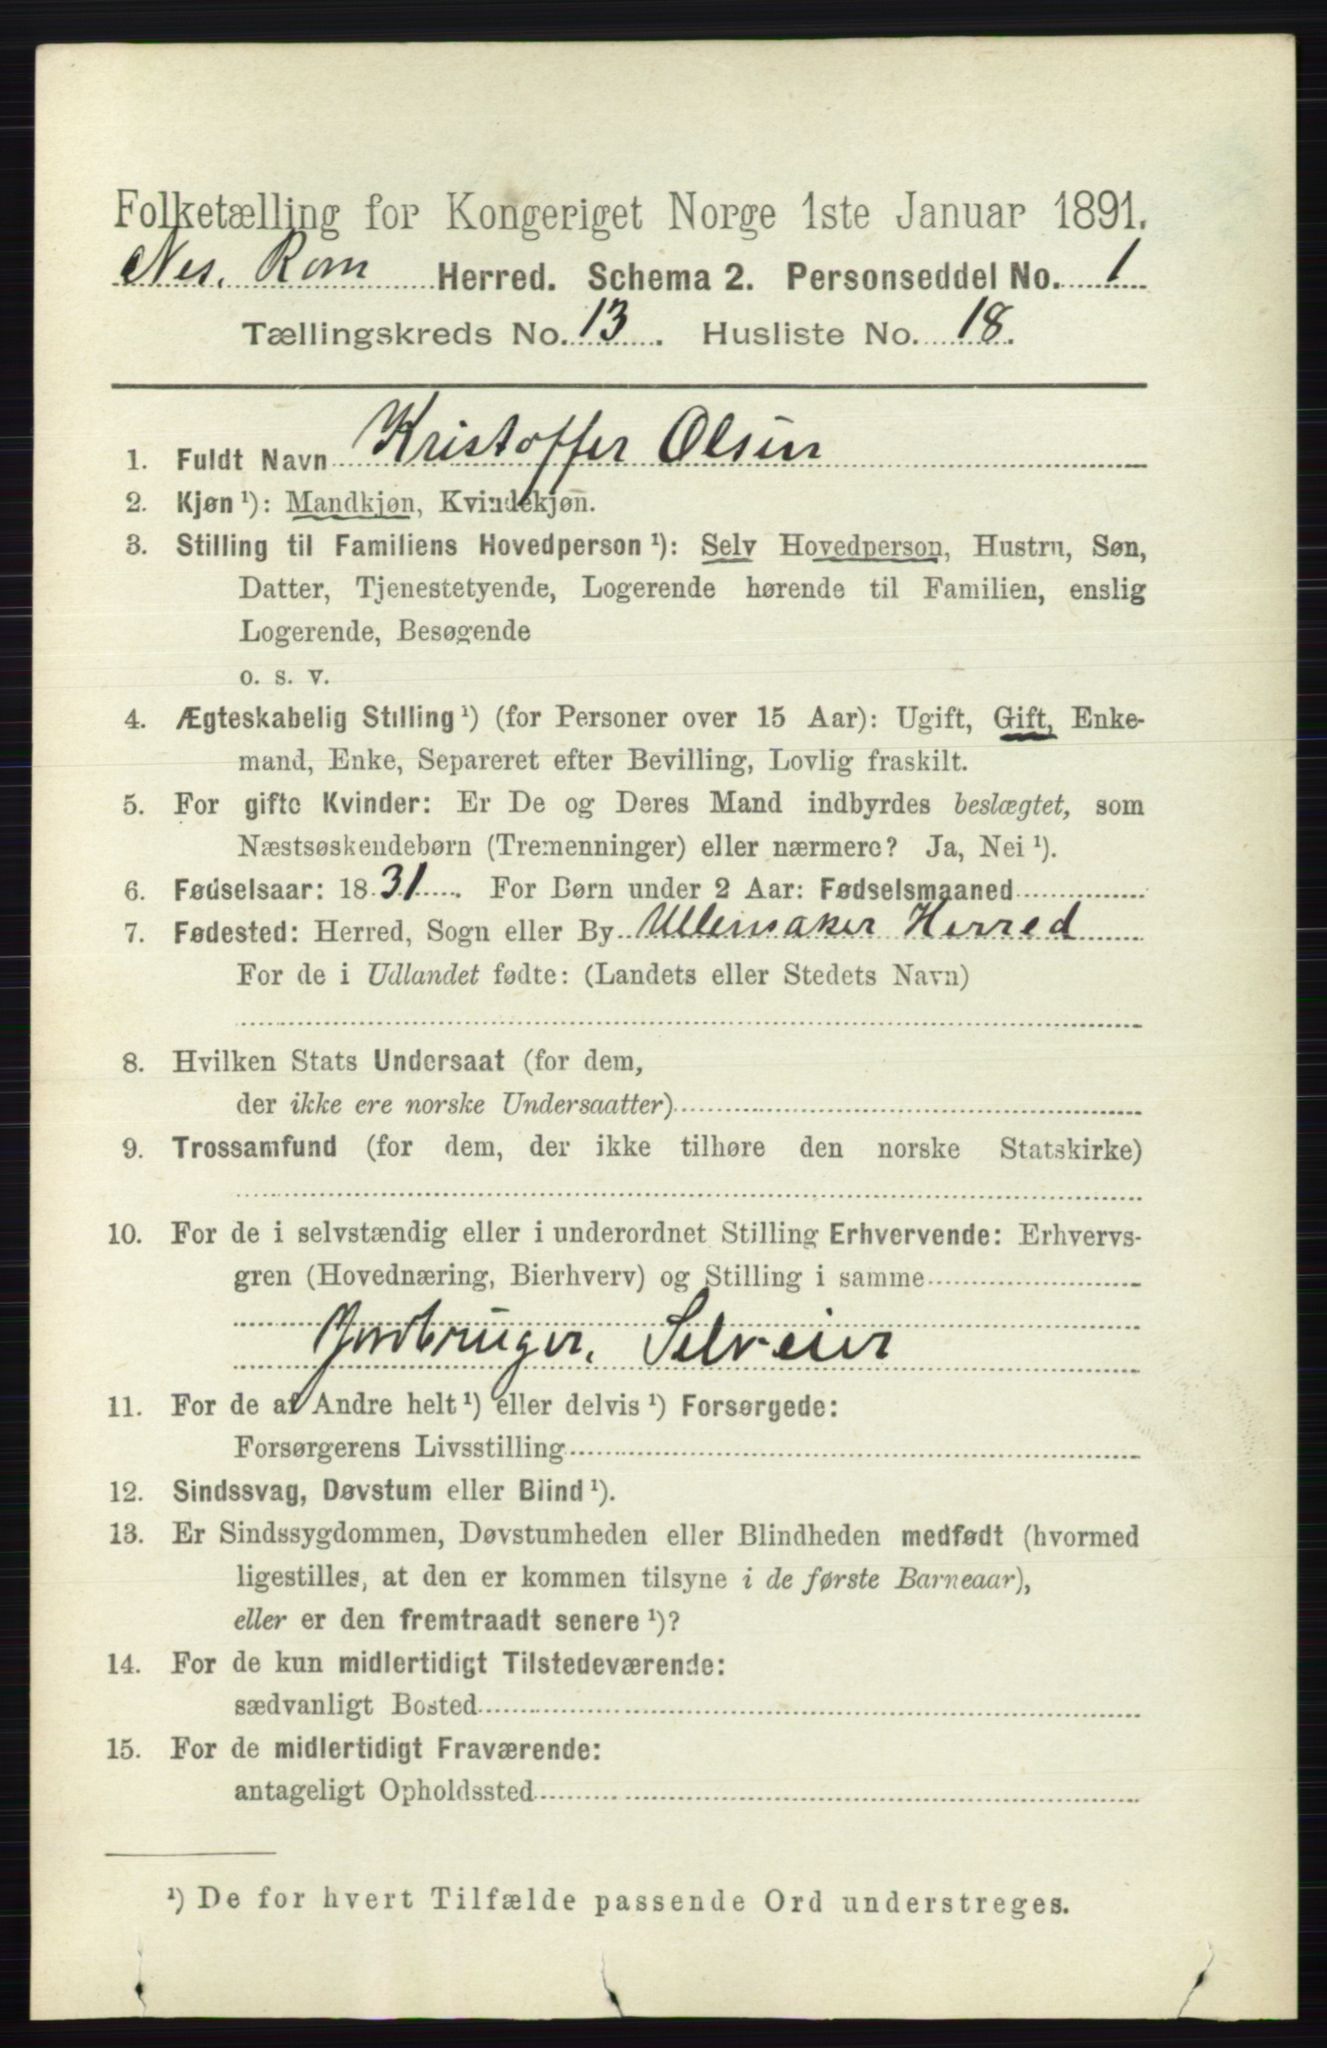 Folketælling for Kongeriget Norge 1ste Januar 1891.
Nes. Rom Herred. Schema 2. Personseddel No. 1
Tællingskreds No. 13. Husliste No. 18.
1. Fuldt Navn Kristoffer Olsen
2. Kjøn ¹): Mandkjøn, Kvindekjøn.
3. Stilling til Familiens Hovedperson ¹): Selv Hovedperson, Hustru, Søn,
Datter, Tjenestetyende, Logerende hørende til Familien, enslig
Logerende, Besøgende
o. s. v.
4. Ægteskabelig Stilling ¹) (for Personer over 15 Aar): Ugift, Gift, Enke-
mand, Enke, Separeret efter Bevilling, Lovlig fraskilt.
5. For gifte Kvinder: Er De og Deres Mand indbyrdes beslægtet, som
Næstsøskendebørn (Tremenninger) eller nærmere? Ja, Nei ¹).
6. Fødselsaar: 1831. For Børn under 2 Aar: Fødselsmaaned
7. Fødested: Herred, Sogn eller By Ullensaker Herred
For de i Udlandet fødte: (Landets eller Stedets Navn)
8. Hvilken Stats Undersaat (for dem,
der ikke ere norske Undersaatter)
9. Trossamfund (for dem, der ikke tilhøre den norske Statskirke)
10. For de i selvstændig eller i underordnet Stilling Erhvervende: Erhvervs-
gren (Hovednæring, Bierhverv) og Stilling i samme
Jordbruger, Selveier
11. For de af Andre helt ¹) eller delvis ¹) Forsørgede:
Forsørgerens Livsstilling
12. Sindssvag, Døvstum eller Blind ¹).
13. Er Sindssygdommen, Døvstumheden eller Blindheden medfødt (hvormed
ligestilles, at den er kommen tilsyne i de første Barneaar),
eller er den fremtraadt senere ¹)?
14. For de kun midlertidigt Tilstedeværende:
sædvanligt Bosted
15. For de midlertidigt Fraværende:
antageligt Opholdssted
¹) De for hvert Tilfælde passende Ord understreges.